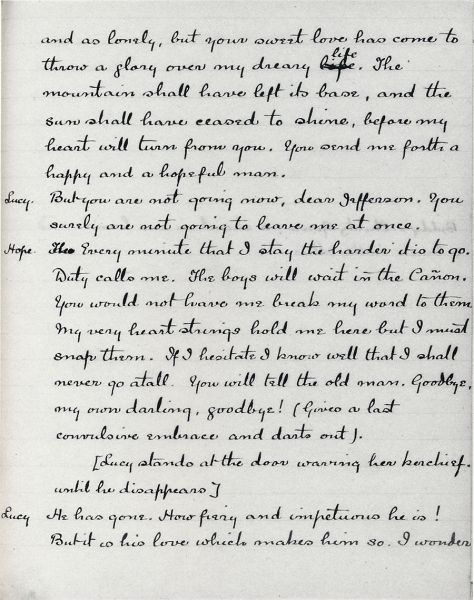 and as lonely, but your sweet love has come to
life
throw a glory over my dreary. The
mountain shall have left its base, and the
sun shall have ceased to shine, before my
heart will turn from you. You send me forth a
happy and a hopeful man.
Lucy. But you are not going now, dear Jefferson. You
surely are not going to leave me at once.
Hope. The Every minute that I stay the harder it is to go.
Duty calls me. The boys will wait in the Cañon.
You would not have me break my word to them
My very heart strings hold me here but I must
snap them. If I hesitate I know well that I shall
never go at all. You will tell the old man. Goodbye,
my own darling, goodbye! (Gives a last
convulsive embrace and darts out).
[Lucy stands at the door waving her kerchief.
until he disappears]
Lucy He has gone. How fiery and impetuous he is!
But it is his love which makes him so. I wonder